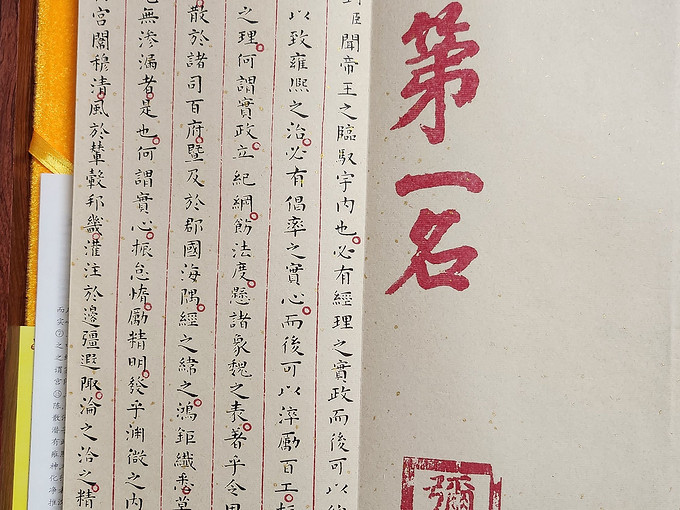 第一名
彌
臣聞帝王之臨馭宇內也必有經理之實政而後可以
以致雍熙之治必有倡率之實心而後可以淬勵百工
之理何謂實政立紀綱飭法度懸諸象魏之表著乎令
散於諸司百府暨及於郡國海隅經之緯之鴻鉅纖悉莫
無滲漏者是也何謂實心振怠惰勵精明發乎淵微之內
宮闈穆清風於輦轂邦畿灌注於邊疆遐陬淪之洽之精